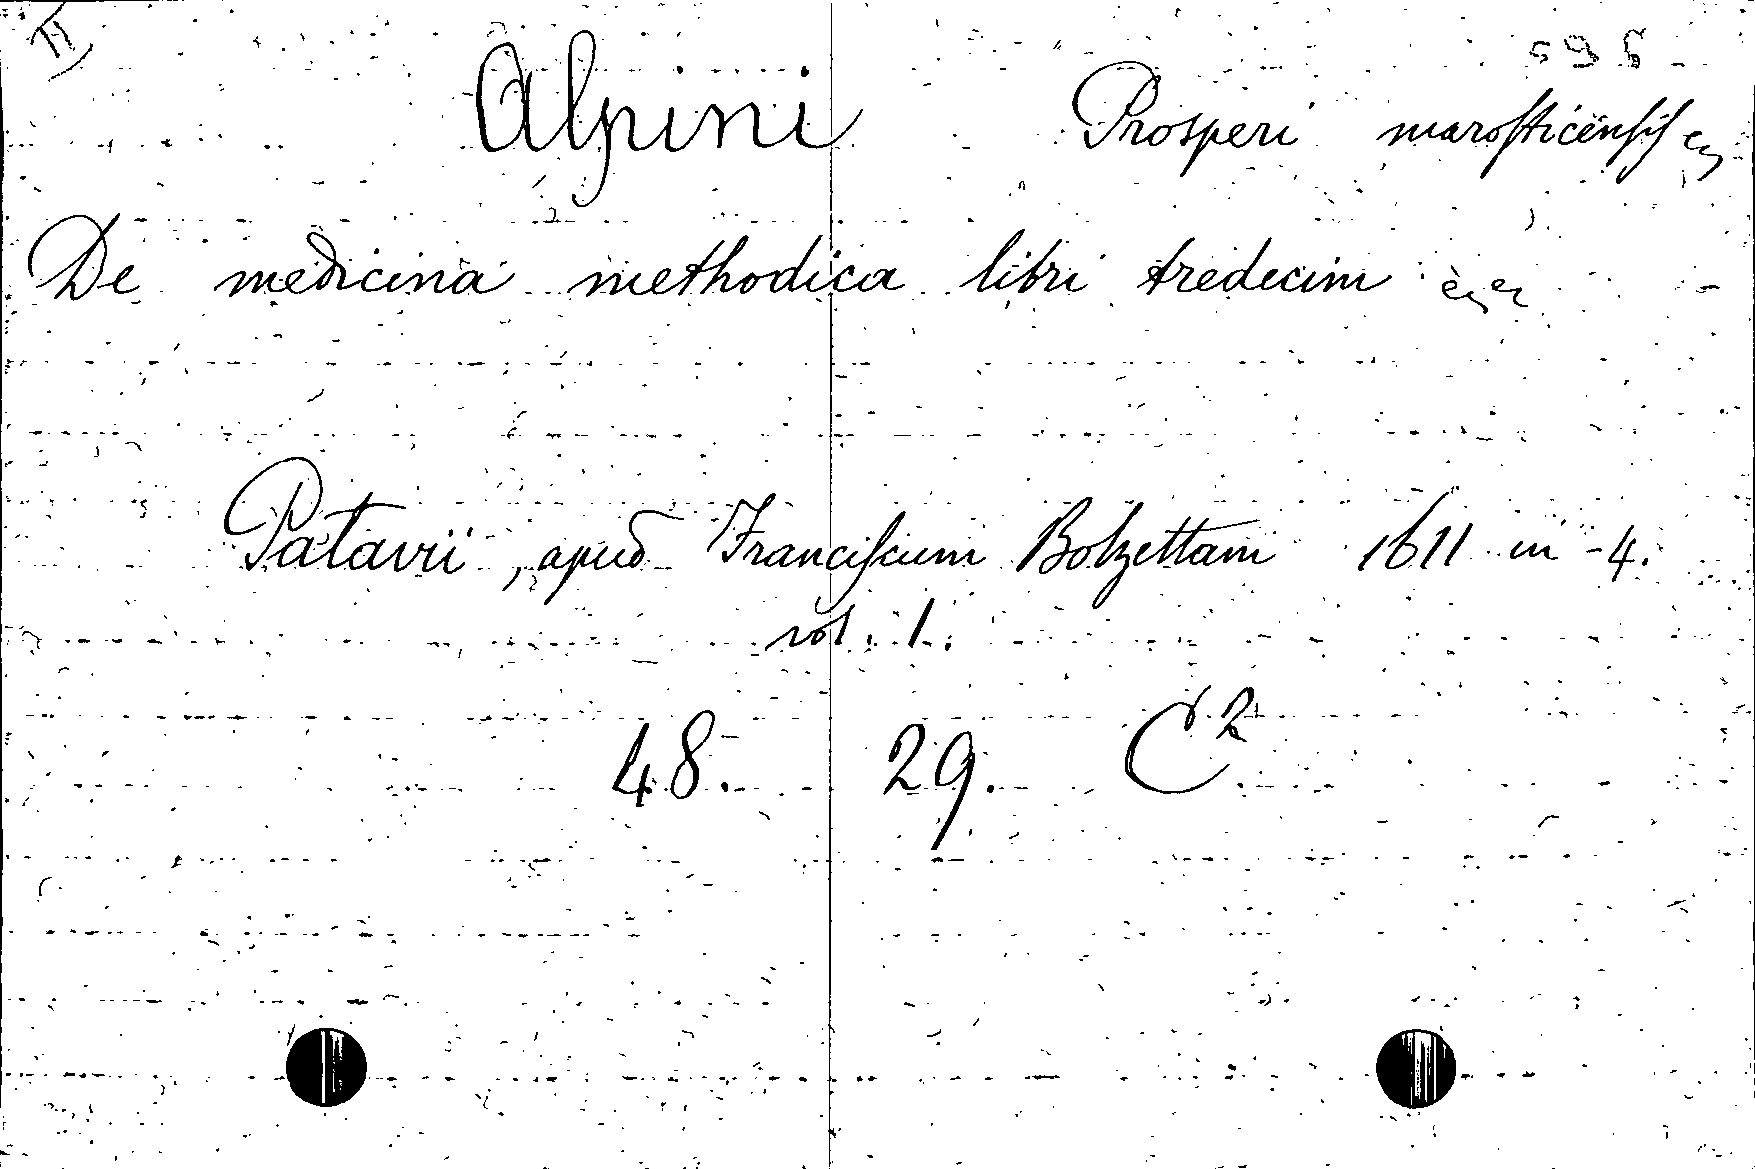 595
Alpini Prosperi marosticensis
De medicina methodica libri tredecim
Patavii, apud Franciscum Bolzettam 1611 in-4.
vol. 1.
48. 29. C²